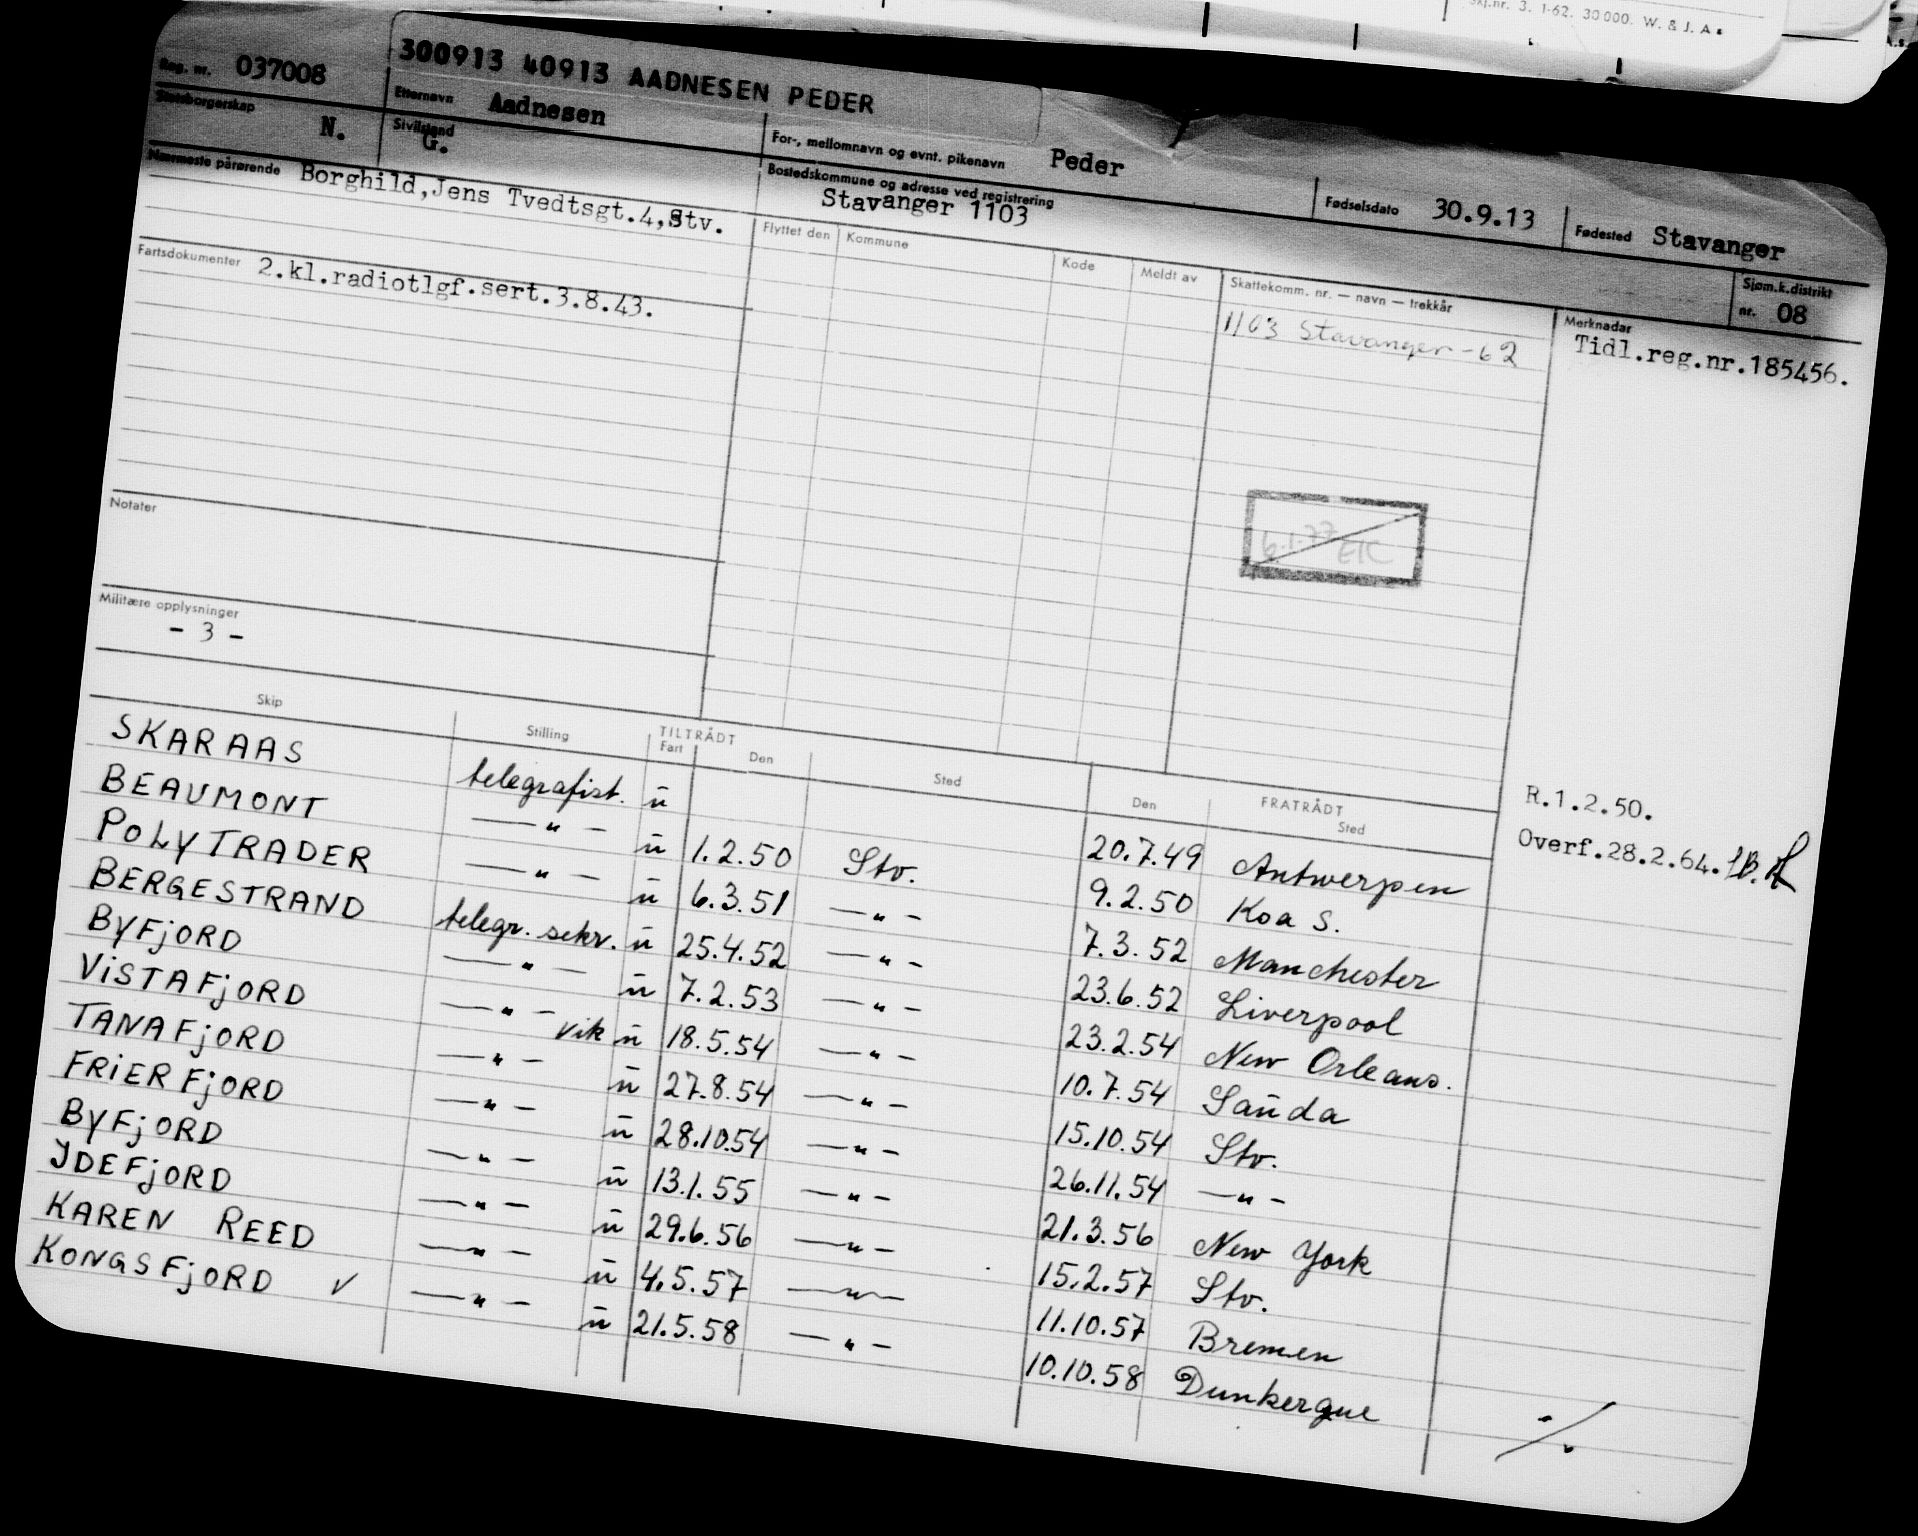 Skj.nr. 3. 1-62. 30 000. W. & J. A.s
300913 40913 AADNESEN PEDER
Reg. nr. 037008
Etternavn Aadnesen
For-, mellomnavn og evnt. pikenavn Peder
Fødselsdato 30.9.13
Fødested Stavanger
Statsborgerskap N.
Sivilstand G.
Bostedskommune og adresse ved registrering Stavanger 1103
Sjøm.k.distrikt nr. 08
Nærmeste pårørende Borghild, Jens Tvedtsgt.4, Stv.
Flyttet den Kommune Kode Meldt av Skattekomm. nr. — navn — trekkår Merknader
1103 Stavanger - 62
Tidl.reg.nr.185456.
Fartsdokumenter 2.kl.radiotlgf.sert.3.8.43.
6.1.77 EK
Notater
Militære opplysninger
- 3 -
R.1.2.50.
Overf.28.2.64.
Skip Stilling TILTRÅDT Fart Den Sted FRATRÅDT Den Sted
SKARAAS telegrafist. ū 20.7.49 Antwerpen
BEAUMONT —"— ū 1.2.50 Stv. 9.2.50 Koa S.
POLYTRADER —"— ū 6.3.51 —"— 7.3.52 Manchester
BERGESTRAND telegr. sekr. ū 25.4.52 —"— 23.6.52 Liverpool
BYFJORD —"— ū 7.2.53 —"— 23.2.54 New Orleans.
VISTAFJORD —"— vik ū 18.5.54 —"— 10.7.54 Sauda
TANAFJORD —"— ū 27.8.54 —"— 15.10.54 Stv.
FRIERFJORD —"— ū 28.10.54 —"— 26.11.54 —"—
BYFJORD —"— ū 13.1.55 —"— 21.3.56 New York
IDEFJORD —"— ū 29.6.56 —"— 15.2.57 Stv.
KAREN REED —"— ū 4.5.57 —"— 11.10.57 Bremen
KONGSFJORD ✓ —"— ū 21.5.58 —"— 10.10.58 Dunkerque
./.